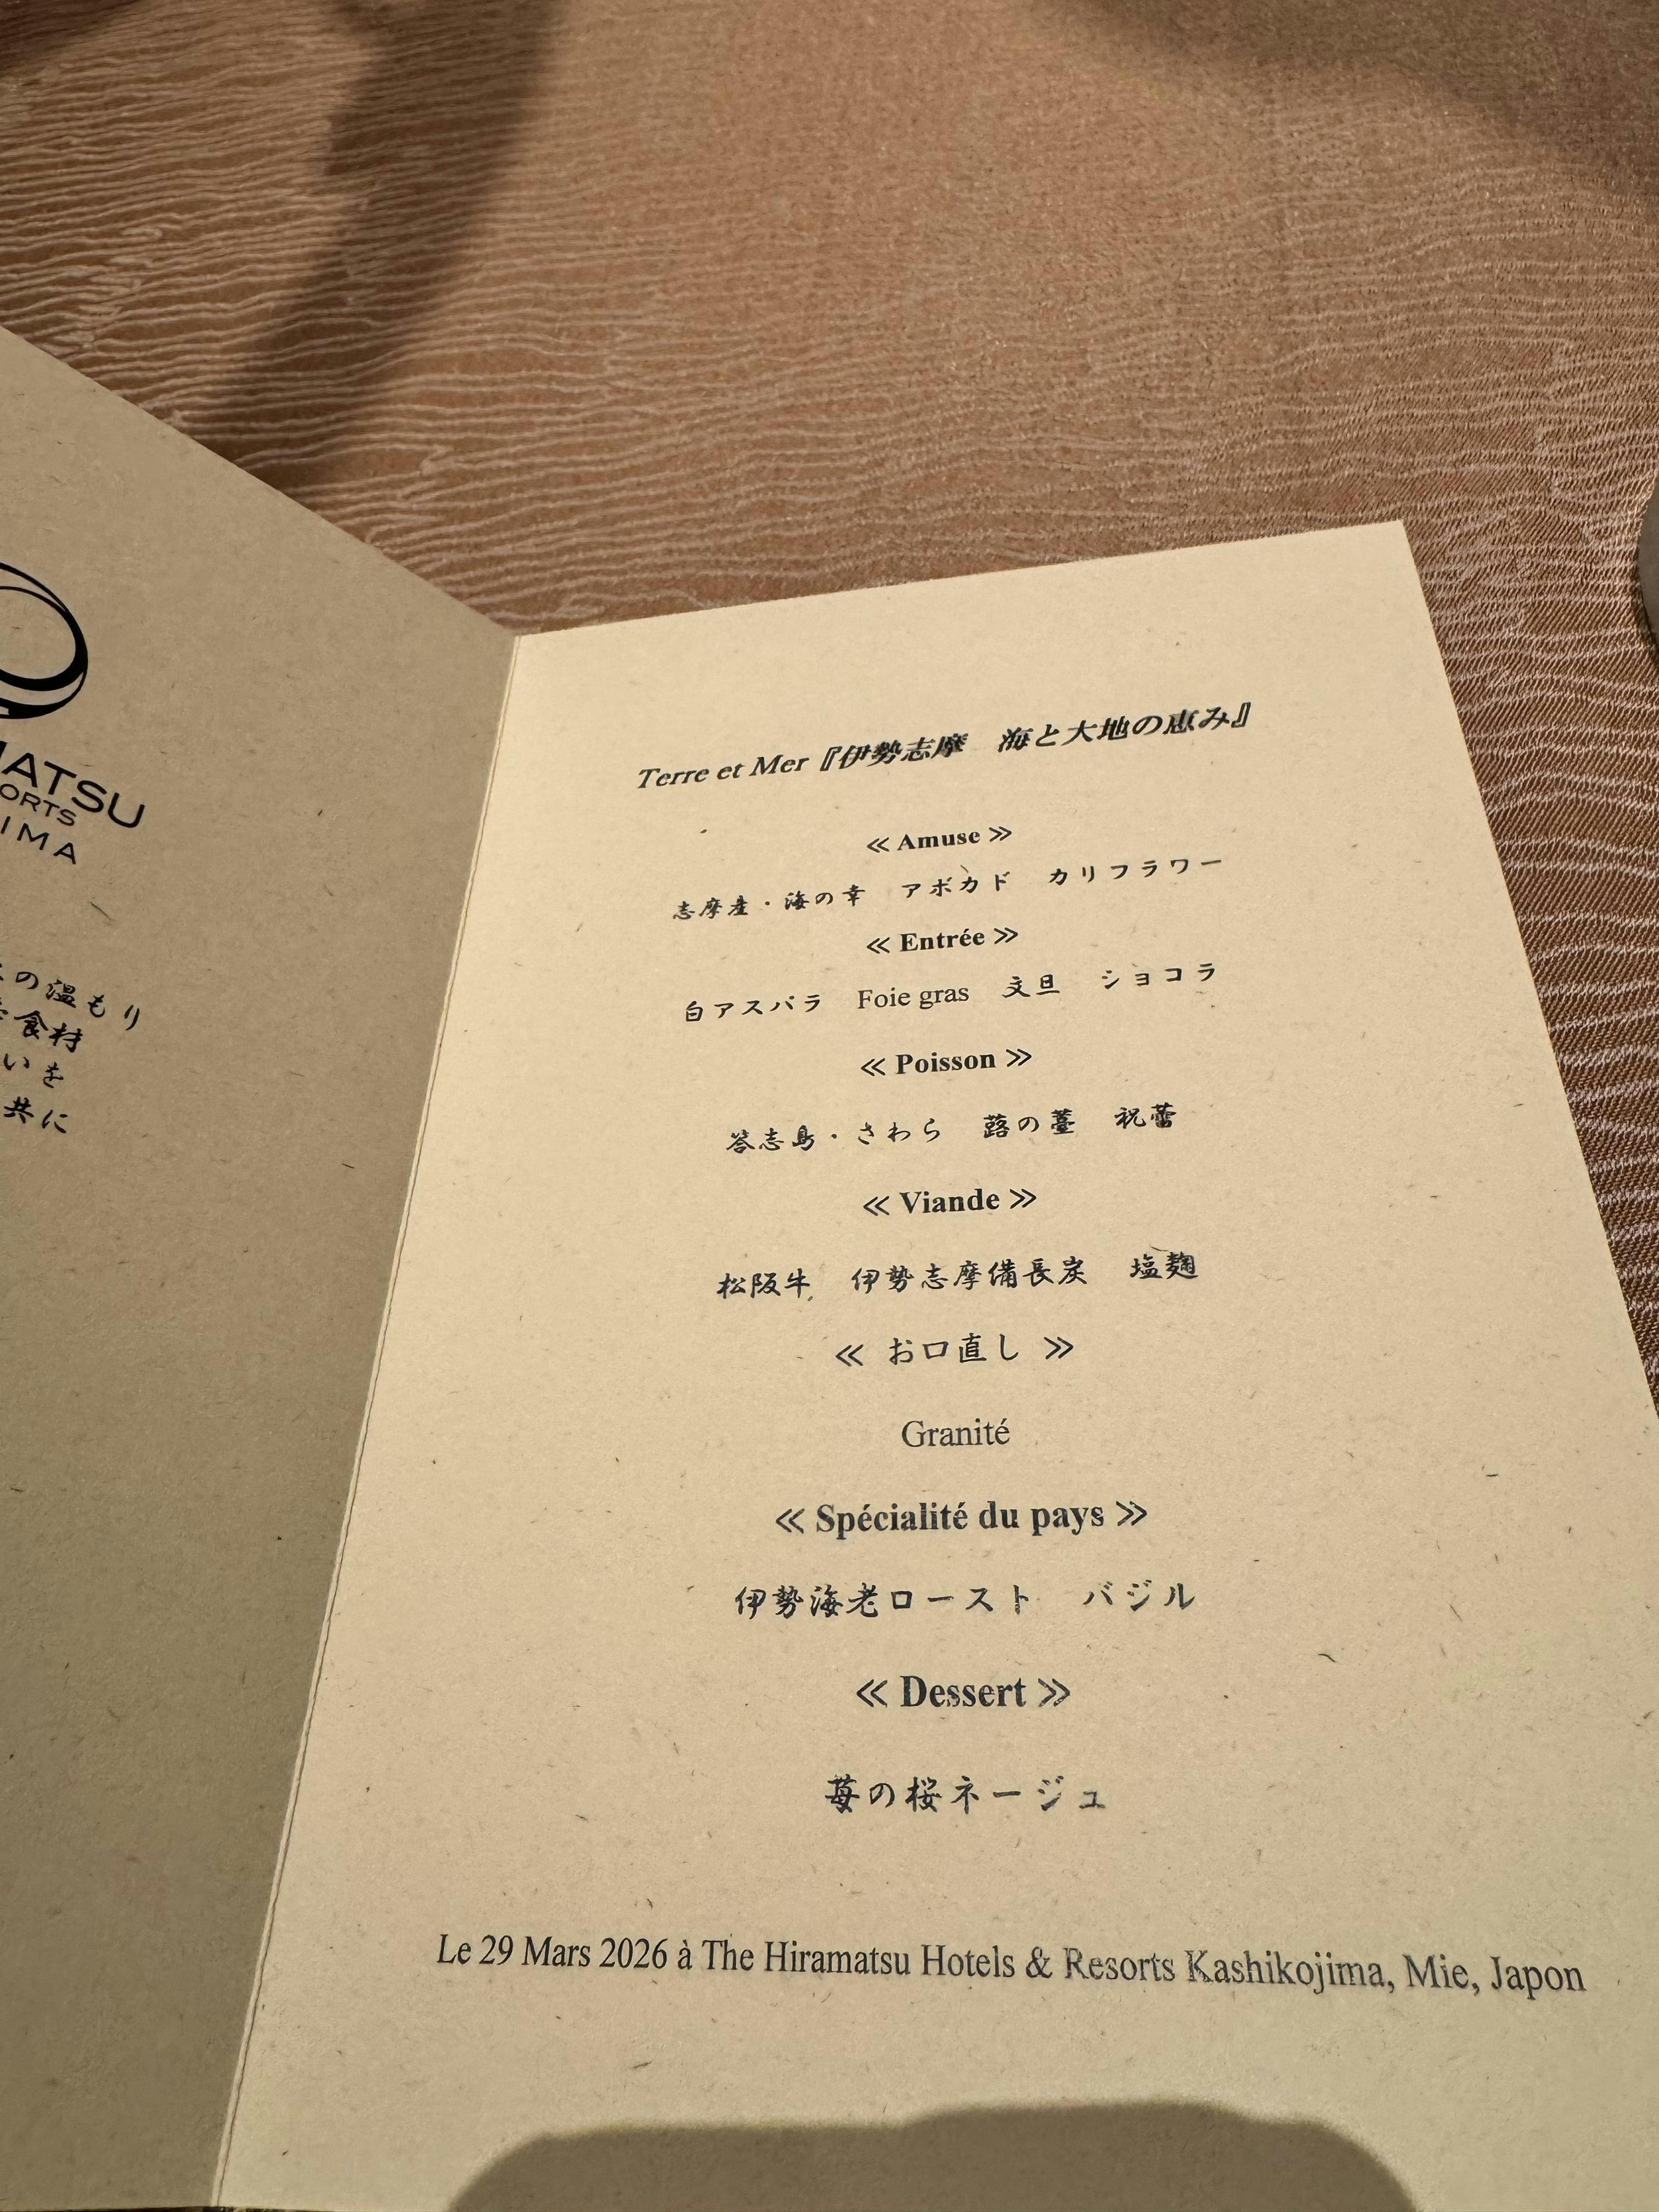 MATSU
ORTS
IMA
の温もり
食材
いを
共に
Terre et Mer『伊勢志摩　海と大地の恵み』
≪ Amuse ≫
志摩産・海の幸　アボカド　カリフラワー
≪ Entrée ≫
白アスパラ　Foie gras　文旦　ショコラ
≪ Poisson ≫
答志島・さわら　蕗の薹　祝蕾
≪ Viande ≫
松阪牛　伊勢志摩備長炭　塩麹
≪ お口直し ≫
Granité
≪ Spécialité du pays ≫
伊勢海老ロースト　バジル
≪ Dessert ≫
苺の桜ネージュ
Le 29 Mars 2026 à The Hiramatsu Hotels & Resorts Kashikojima, Mie, Japon